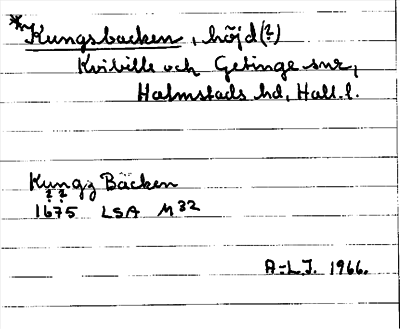 *Kungsbacken, höjd(?)
Kvibille och Getinge snr,
Halmstads hd, Hall. l.
Kungz Bäcken
? ?
1675 LSA M32
A-L.J. 1966.